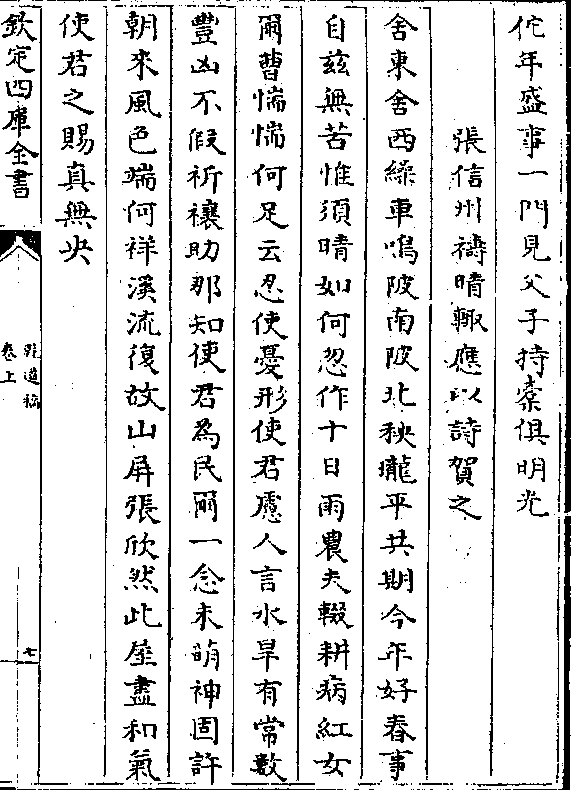 佗年盛事一門見父子持橐俱明光
張信州禱晴輙應以詩賀之
舍東舍西繰車鳴陂南陂北秧壠平共期今年好春事
自兹無苦惟須晴如何忽作十日雨農夫輟耕病紅女
爾曹惴惴何足云忍使憂形使君慮人言水旱有常數
豐凶不假祈禳助那知使君為民爾一念未萌神固許
朝來風色端何祥溪流復故山屏張欣然比屋盡和氣
使君之賜真無央
欽定四庫全書
乾道稿
卷上
七